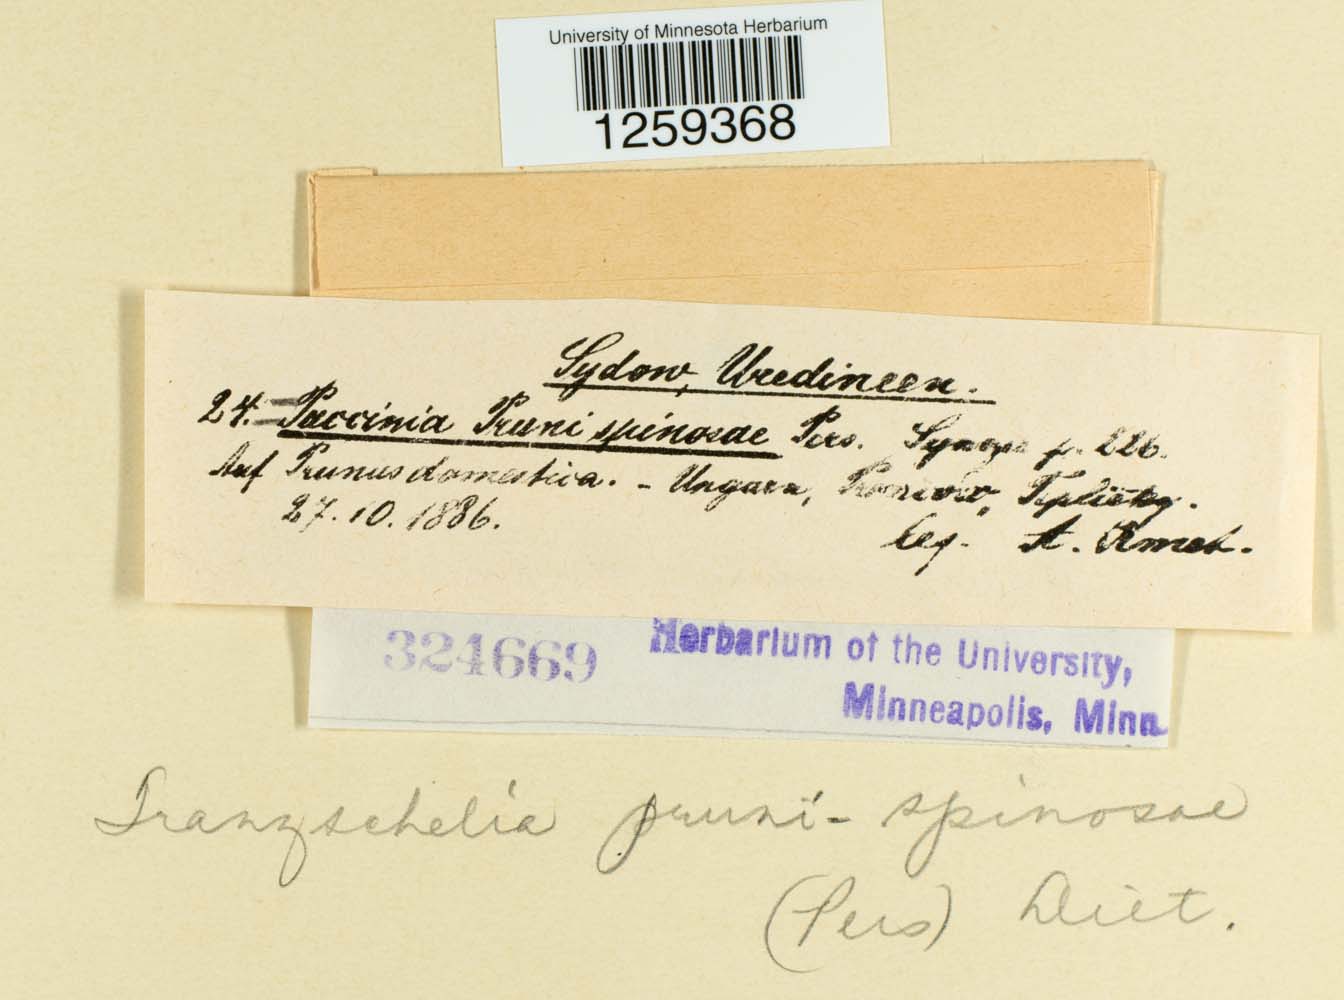 University of Minnesota Herbarium
1259368
Sydow, Uredineen.
24. Puccinia Pruni spinosae Pers. Synops p. 226.
Auf Prunus domestica. - Ungarn, Teplicky.
27. 10. 1886.
leg. A. Kmet.
324669
Herbarium of the University,
Minneapolis, Minn
Tranzschelia pruni-spinosae
(Pers) Diet.